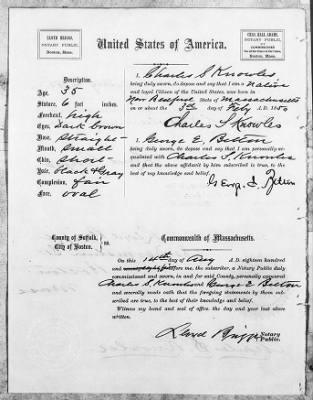 LLOYD BRIGGS,
NOTARY PUBLIC,
Boston, Mass.
CHAS. HALL ADAMS,
NOTARY PUBLIC,
Boston, Mass.
United States of America.
Description.
Age, 35
Stature, 6 feet inches
Forehead, high
Eyes, Dark brown
Nose, Straight
Mouth, Small
Chin, Short
Hair, Black & Gray
Complexion, fair
Face, oval
I, Charles S Knowles
being duly sworn, do depose and say that I am a Native
and loyal Citizen of the United States, was born in
New Bedford State of Massachusetts
on or about the 3rd day of Feby A.D. 1850
Charles S Knowles
I, George E, Belton
being duly sworn, do depose and say that I am personally acquainted
with Charles S. Knowles
and that the above affidavit by him subscribed is true, to the
best of my knowledge and belief.
County of Suffolk,
City of Boston. ss.
Commonwealth of Massachusetts.
On this 14th day of Aug A.D. eighteen hundred
and before me, the subscriber, a Notary Public duly
commissioned and sworn, in and for said County, personally appeared
Charles S. Knowles George E Belton
and severally made oath that the foregoing statements by them subscribed
are true, to the best of their knowledge and belief.
Witness my hand and seal of office the day and year last above
written.
Lloyd Briggs Notary
Public.